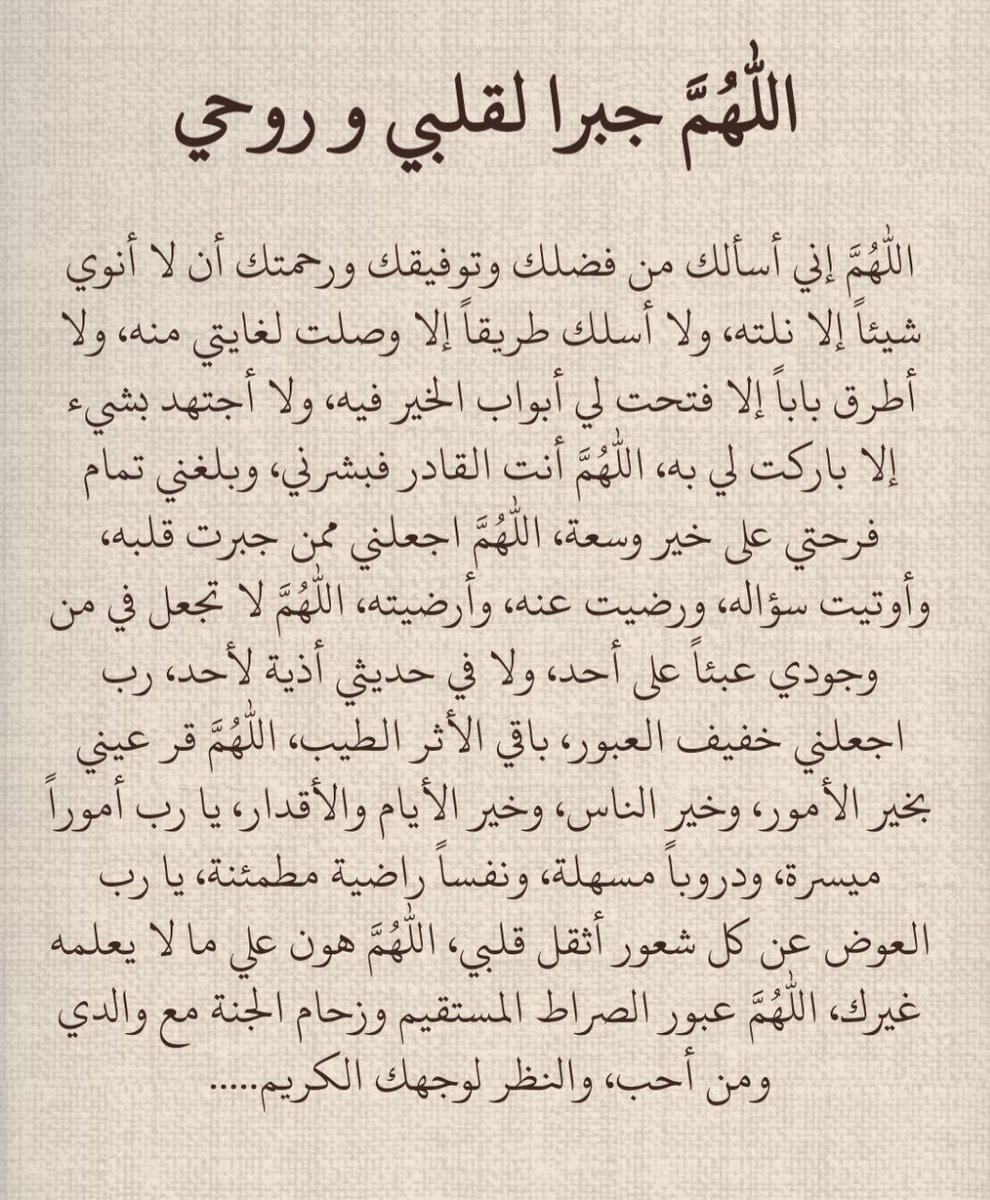 اللَّهُمَّ جبرا لقلبي و روحي
اللَّهُمَّ إني أسألك من فضلك وتوفيقك ورحمتك أن لا أنوي
شيئاً إلا نلته، ولا أسلك طريقاً إلا وصلت لغايتي منه، ولا
أطرق باباً إلا فتحت لي أبواب الخير فيه، ولا أجتهد بشيء
إلا باركت لي به، اللَّهُمَّ أنت القادر فبشرني، وبلغني تمام
فرحتي على خير وسعة، اللَّهُمَّ اجعلني ممن جبرت قلبه،
وأوتيت سؤاله، ورضيت عنه، وأرضيته، اللَّهُمَّ لا تجعل في من
وجودي عبئاً على أحد، ولا في حديثي أذية لأحد، رب
اجعلني خفيف العبور، باقي الأثر الطيب، اللَّهُمَّ قر عيني
بخير الأمور، وخير الناس، وخير الأيام والأقدار، يا رب أموراً
ميسرة، ودروباً مسهلة، ونفساً راضية مطمئنة، يا رب
العوض عن كل شعور أثقل قلبي، اللَّهُمَّ هون علي ما لا يعلمه
غيرك، اللَّهُمَّ عبور الصراط المستقيم وزحام الجنة مع والدي
ومن أحب، والنظر لوجهك الكريم.....